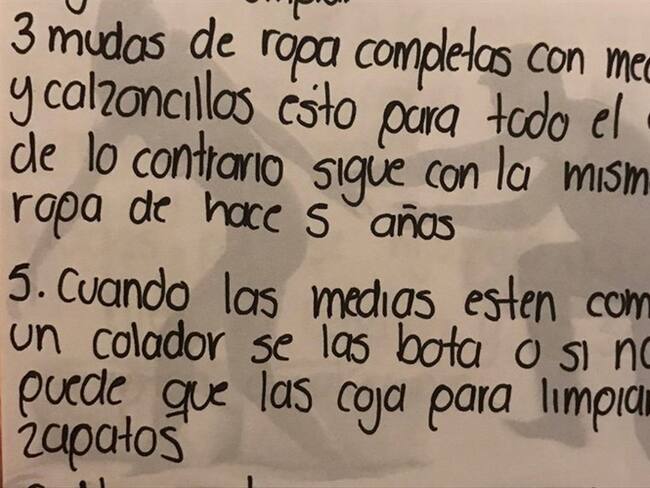 3 mudas de ropa completas con
y calzoncillos esto para todo el
de lo contrario sigue con la mism
ropa de hace 5 años
5. Cuando las medias esten com
un colador se las bota o si no
puede que las coja para limpiar
zapatos